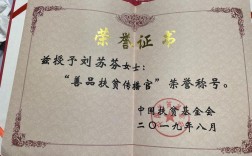 荣誉证书
兹授予刘苏芬女士：
“善品扶贫传播官”荣誉称号。
中国扶贫基金会
二〇一九年八月